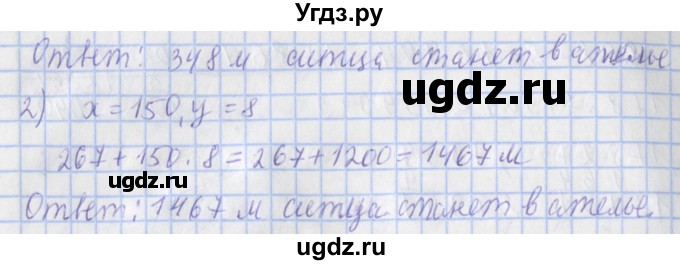 Угдз.ру
Ответ: 348 м ситца станет в ателье
ugdz.ru
2) x = 150, y = 8
267 + 150 · 8 = 267 + 1200 = 1467 м
ugdz.ru
ugdz.ru
Ответ: 1467 м ситца станет в ателье.
ugdz.ru